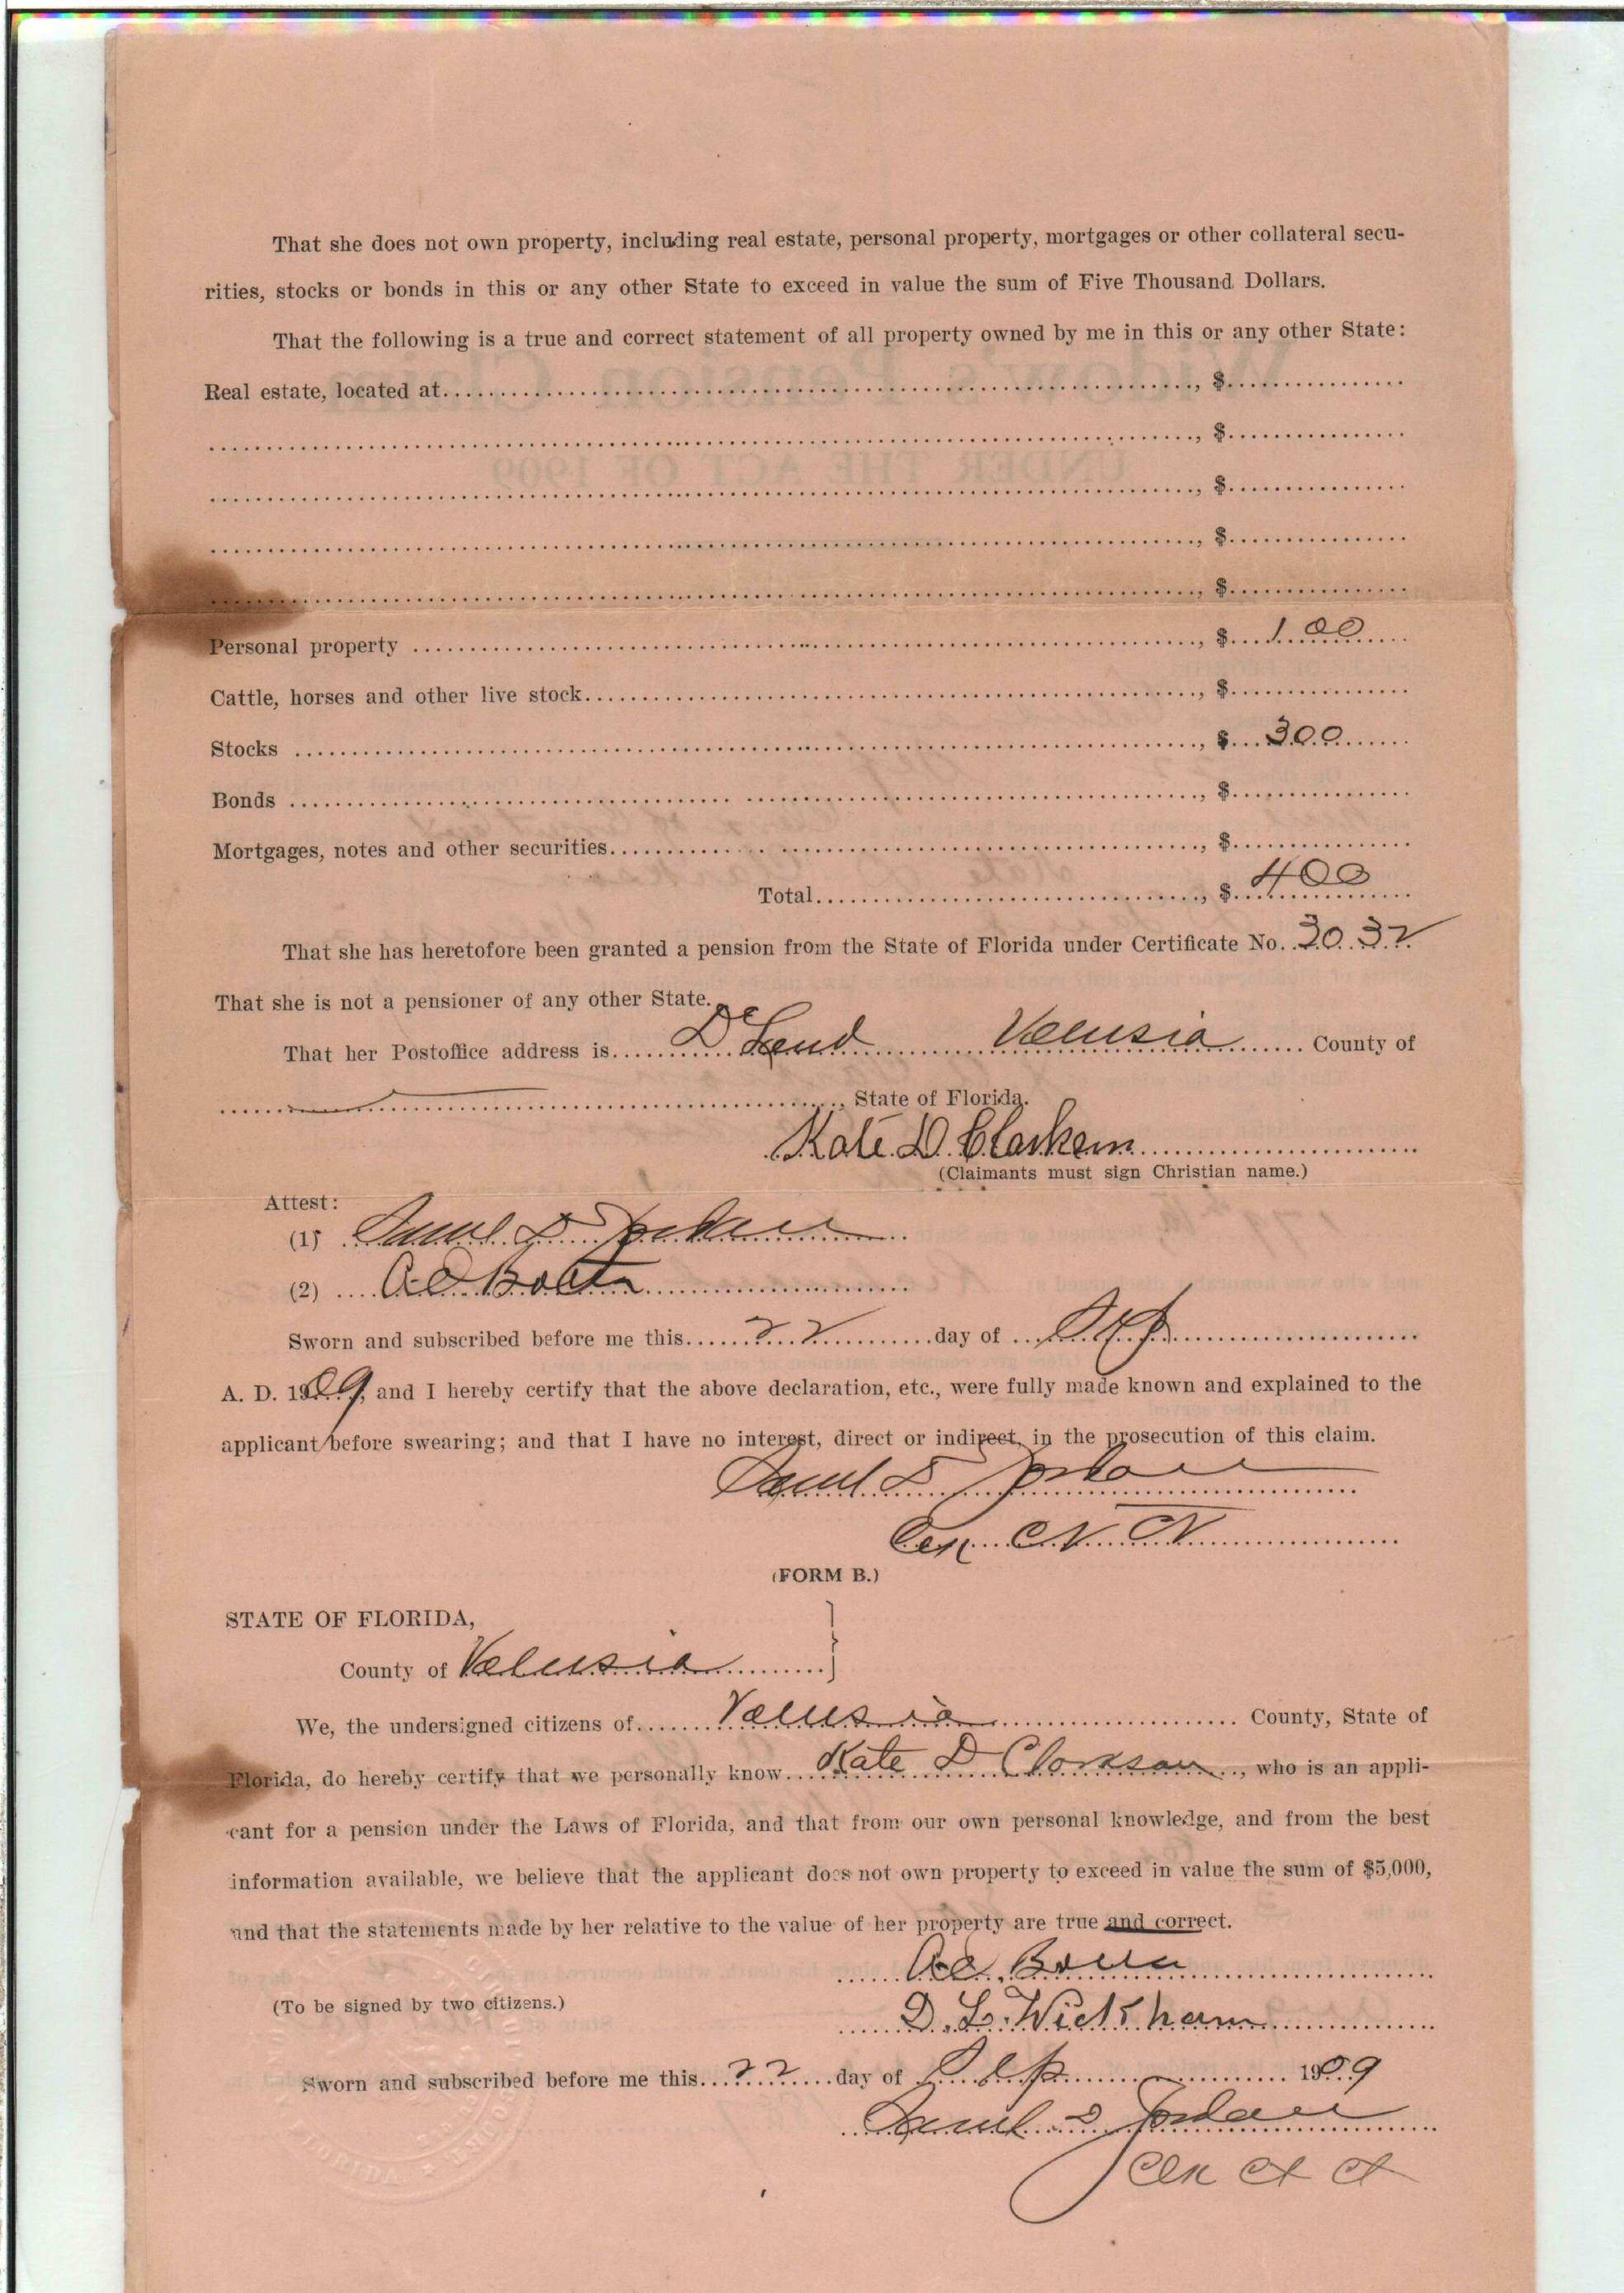 That she does not own property, including real estate, personal property, mortgages or other collateral secu-
rities, stocks or bonds in this or any other State to exceed in value the sum of Five Thousand Dollars.
That the following is a true and correct statement of all property owned by me in this or any other State:
Real estate, located at, $
, $
, $
, $
, $
Personal property, $ 100
Cattle, horses and other live stock, $
Stocks, $ 300
Bonds, $
Mortgages, notes and other securities, $
Total, $ 400
That she has heretofore been granted a pension from the State of Florida under Certificate No. 3032
That she is not a pensioner of any other State.
That her Postoffice address is DeLand Volusia County of
, State of Florida.
Kate D. Clarkson
(Claimants must sign Christian name.)
Attest:
(1) Saml D Jordan
(2)
Sworn and subscribed before me this 22 day of Sep
A. D. 1909, and I hereby certify that the above declaration, etc., were fully made known and explained to the
applicant before swearing; and that I have no interest, direct or indirect, in the prosecution of this claim.
Saml D Jordan
Clk
(FORM B.)
STATE OF FLORIDA,
County of Volusia
We, the undersigned citizens of Volusia County, State of
Florida, do hereby certify that we personally know Kate D Clarkson, who is an appli-
cant for a pension under the Laws of Florida, and that from our own personal knowledge, and from the best
information available, we believe that the applicant does not own property to exceed in value the sum of $5,000,
and that the statements made by her relative to the value of her property are true and correct.
(To be signed by two citizens.)
D. L. Wickham
Sworn and subscribed before me this 22 day of Sep 1909
Saml D Jordan
Clk Ct Ct